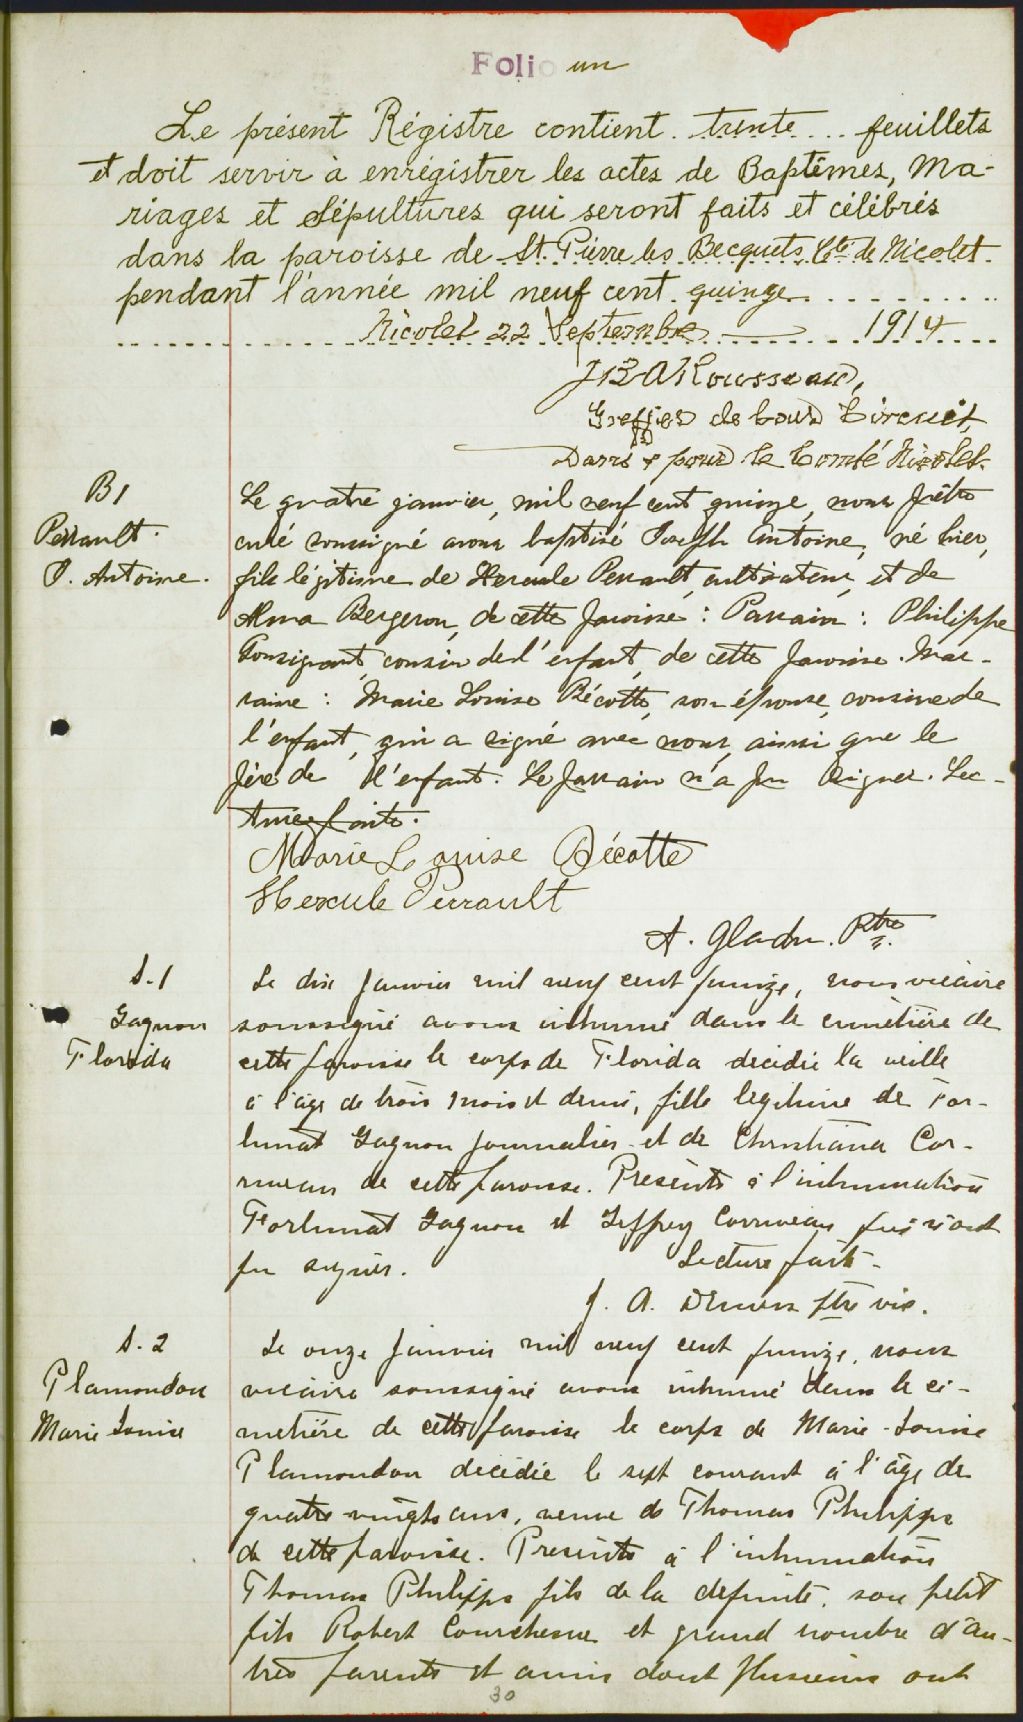 Folio un
Le présent Régistre contient trente feuillets
et doit servir à enrégistrer les actes de Baptêmes, Ma-
riages et Sépultures qui seront faits et célébrés
dans la paroisse de St. Pierre les Becquets, Cté de Nicolet
pendant l'année mil neuf cent quinze
Nicolet 22 Septembre 1914
J B A Rousseau,
Greffier de Cour Circuit,
Dans & pour le Comté Nicolet
B 1
Perrault
J. Antoine.
Le quatre janvier, mil neuf cent quinze, nous prêtre
curé soussigné avons baptisé Joseph Antoine, né hier,
fils légitime de Hercule Perrault, cultivateur, et de
Alma Bergeron, de cette paroisse : Parrain : Philippe
Tousignant, cousin de l'enfant, de cette paroisse. Mar-
raine : Marie Louise Bécotte, son épouse, cousine de
l'enfant, qui a signé avec nous, ainsi que le
père de l'enfant. Le parrain n'a pu signer. Lec-
ture faite.
Marie Louise Bécotte
Hercule Perrault
A. Gladu. Ptre
S. 1
Gagnon
Florida
Le dix janvier mil neuf cent quinze, nous vicaire
soussigné avons inhumé dans le cimetière de
cette paroisse le corps de Florida décédée la veille
à l'âge de trois mois et demi, fille légitime de For-
tunat Gagnon journalier et de Christiana Cor-
riveau de cette paroisse. Présents à l'inhumation
Fortunat Gagnon et Jeffrey Corriveau qui n'ont
pu signer. Lecture faite.
J. A. Demers ptre vic.
S. 2
Plamondon
Marie Louise
Le onze janvier mil neuf cent quinze, nous
vicaire soussigné avons inhumé dans le ci-
metière de cette paroisse le corps de Marie-Louise
Plamondon décédée le sept courant à l'âge de
quatre vingts ans, veuve de Thomas Philipps
de cette paroisse. Présents à l'inhumation
Thomas Philipps fils de la défunte, son petit
fils Robert Courchesne et grand nombre d'au-
tres parents et amis dont plusieurs ont
30